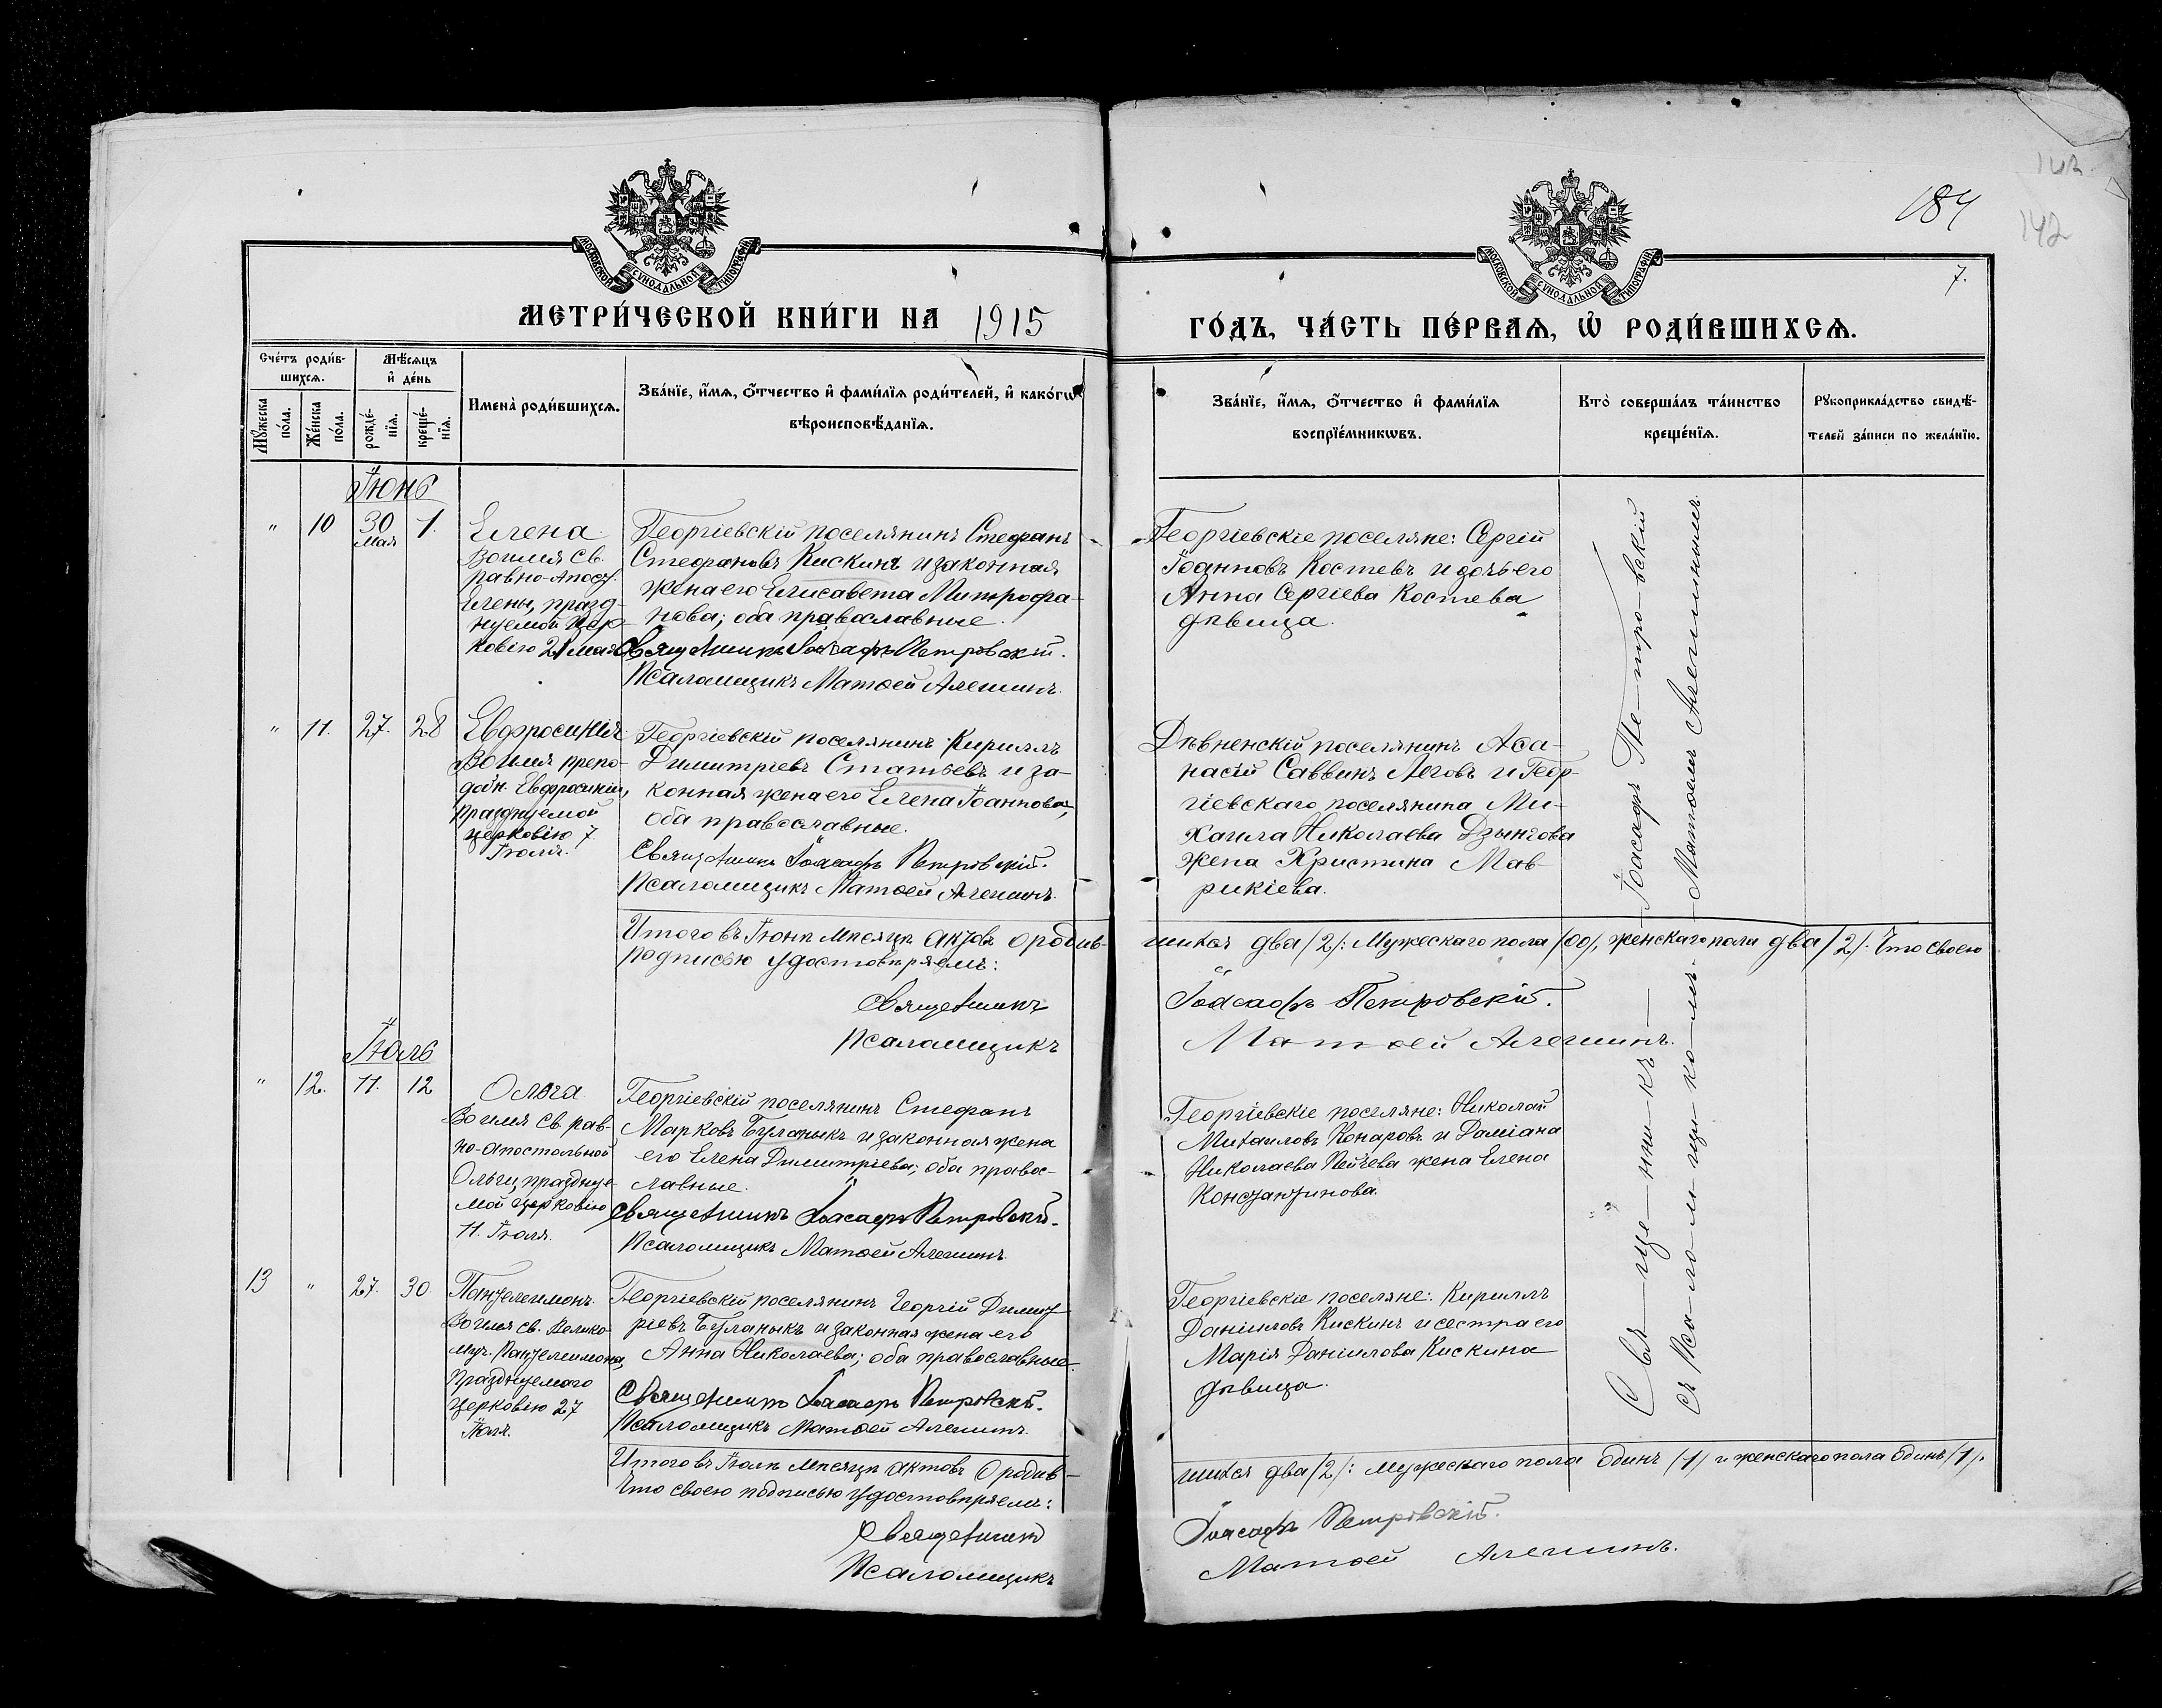 142.
184
142
7.
МОСКОВСКОЙ СѴНОДАЛЬНОЙ ТИПОГРАФІИ
МОСКОВСКОЙ СѴНОДАЛЬНОЙ ТИПОГРАФІИ
МЕТРИ́ЧЕСКОЙ КНИ́ГИ НА 1915
ГО́ДЪ, ЧА́СТЬ ПЕ́РВАѦ, Ѽ РОДИ́ВШИХСѦ.
Сче́тъ роди́в-
шихсѧ.
Мѣ́сѧцъ
и҆ де́нь
Мꙋ́жеска
по́ла.
Же́нска
по́ла.
рожде́-
нїѧ.
креще́-
нїѧ.
Имена̀ роди́вшихсѧ.
Зва́нїе, и҆́мѧ, ѻ҆́тчество и҆ фами́лїѧ роди́телей, и҆ како́гѡ
вѣроисповѣ́данїѧ.
Зва́нїе, и҆́мѧ, ѻ҆́тчество и҆ фами́лїѧ
воспрїе́мникѡвъ.
Кто̀ соверша́лъ та́инство
креще́нїѧ.
Рꙋкоприкла́дство свидѣ́-
телей за́писи по жела́нїю.
Іюнь
" 10 30 мая 1.
Елена
Во имя св.
равно-Апост.
Елены, празд-
нуемой Цер-
ковію 21 мая
Георгіевскій поселянинъ Стефанъ
Стефановъ Кискинъ и законная
жена его Елисавета Митрофа-
нова; оба православные.
Священникъ Іоасафъ Петровскій.
Псаломщикъ Матѳей Алешинъ.
Георгіевскіе поселяне: Сергій
Іоанновъ Костевъ и дочь его
Анна Сергіева Костева
дѣвица.
" 11. 27. 28
Евфросинія
Во имя препо-
добн. Евфросиніи,
празднуемой
церковію 7
Іюля.
Георгіевскій поселянинъ Кириллъ
Димитріевъ Статьевъ и за-
конная жена его Елена Іоаннова,
оба православные.
Священникъ Іоасафъ Петровскій.
Псаломщикъ Матѳей Алешинъ.
Дѣвненскій поселянинъ Аѳа-
насій Саввинъ Леговъ и Геор-
гіевскаго поселянина Ми-
хаила Николаева Дзынгова
жена Христина Мав-
рикіева.
Итого въ Іюнѣ мѣсяцѣ актовъ о родив-
шихся два /2/: Мужескаго пола /00/, женскаго пола два /2/. Что своею
подписью удостовѣряемъ:
Священникъ Іоасафъ Петровскій.
Псаломщикъ Матѳей Алешинъ.
Іюль
" 12. 11. 12
Ольга
Во имя св. рав-
но-апостольной
Ольги, праздну-
мой церковію
11. Іюля.
Георгіевскій поселянинъ Стефанъ
Марковъ Буланыкъ и законная жена
его Елена Димитріева; оба правос-
лавные.
Священникъ Іоасафъ Петровскій.
Псаломщикъ Матѳей Алешинъ.
Георгіевскіе поселяне: Николай
Михаиловъ Конаровъ и Даміана
Николаева Пейчева жена Елена
Константинова.
13 " 27. 30
Пантелеимонъ.
Во имя св. Велико-
муч. Пантелеимона,
празднуемаго
церковію 27
Іюля.
Георгіевскій поселянинъ Георгій Димит-
ріевъ Буланыкъ и законная жена его
Анна Николаева; оба православные.
Священникъ Іоасафъ Петровскій.
Псаломщикъ Матѳей Алешинъ.
Георгіевскіе поселяне: Кириллъ
Даніиловъ Кискинъ и сестра его
Марія Даніилова Кискина
дѣвица.
Свя-ще-нни-къ Іоасафъ Пе-тро-вскій
съ Пса-ло-м-щи-ко-мъ Матѳеемъ Алешинымъ.
Итого въ Іюлѣ мѣсяцѣ актовъ о родив-
шихся два /2/: мужескаго пола одинъ /1/ и женскаго пола одинъ /1/.
Что своею подписью удостовѣряемъ:
Священникъ Іоасафъ Петровскій.
Псаломщикъ Матѳей Алешинъ.